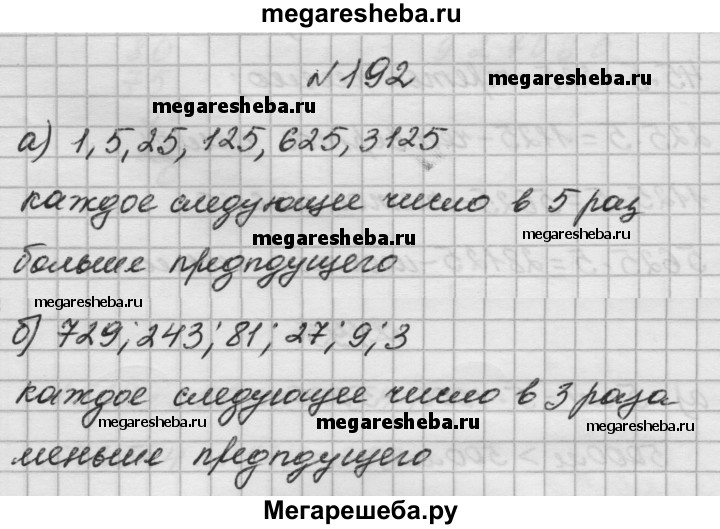 megaresheba.ru
№192
megaresheba.ru
megaresheba.ru
а) 1, 5, 25, 125, 625, 3125
каждое следующее число в 5 раз
megaresheba.ru
больше предпдущего
megaresheba.ru
б) 729; 243; 81; 27; 9; 3
каждое следующее число в 3 раза
megaresheba.ru megaresheba.ru megaresheba.ru
меньше предпдущего
Мегарешеба.ру